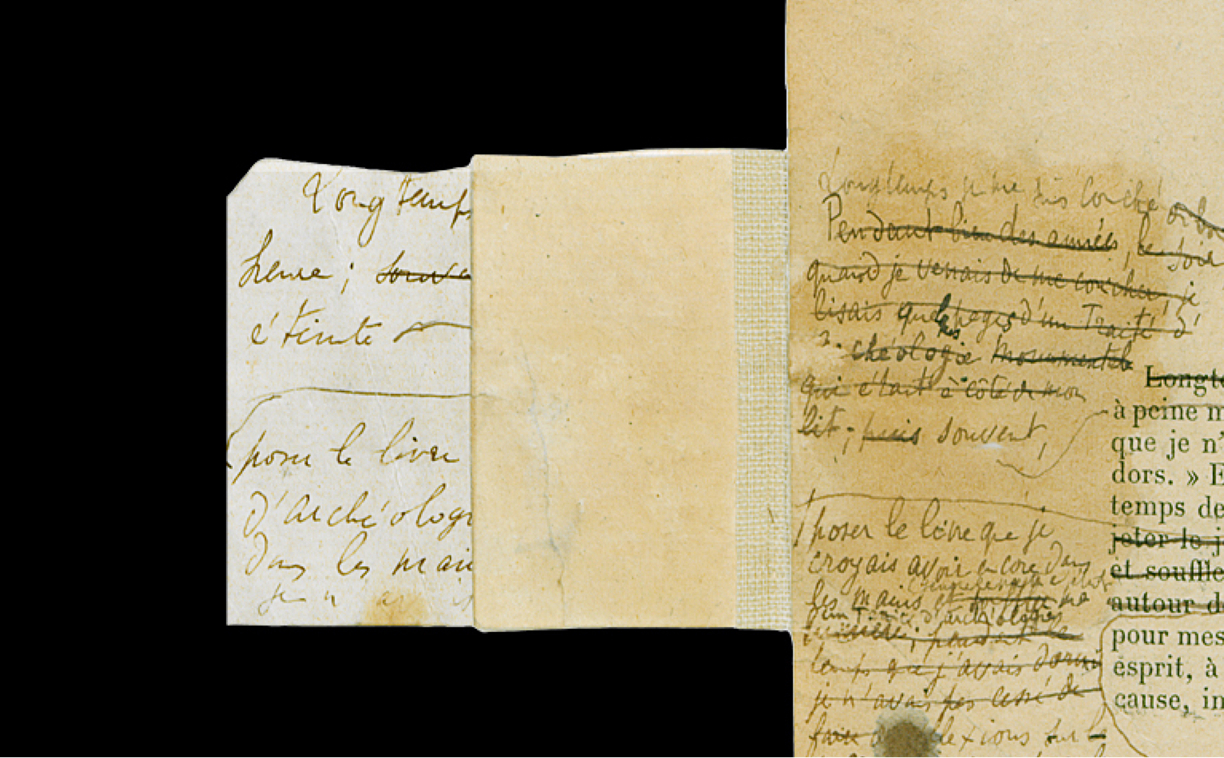 Longtemps
heure ; souve
éteinte
poser le livre
d'archéolog
dans les main
Longtemps je me suis couché de bo
Pendant bien des années, le soir
quand je venais de me coucher, je
lisais quelques pages d'un Traité d'
archéologie monumentale
qui était à côté de mon
lit ; puis souvent,
poser le livre que je
croyais avoir encore dans
les mains
d'archéologie
pendant le
temps que j'avais dormi
je n'avais pas cessé de
faire
Longte
à peine m
que je n'
dors. » E
temps de
jeter le j
et souffle
autour d
pour mes
esprit, à
cause, in